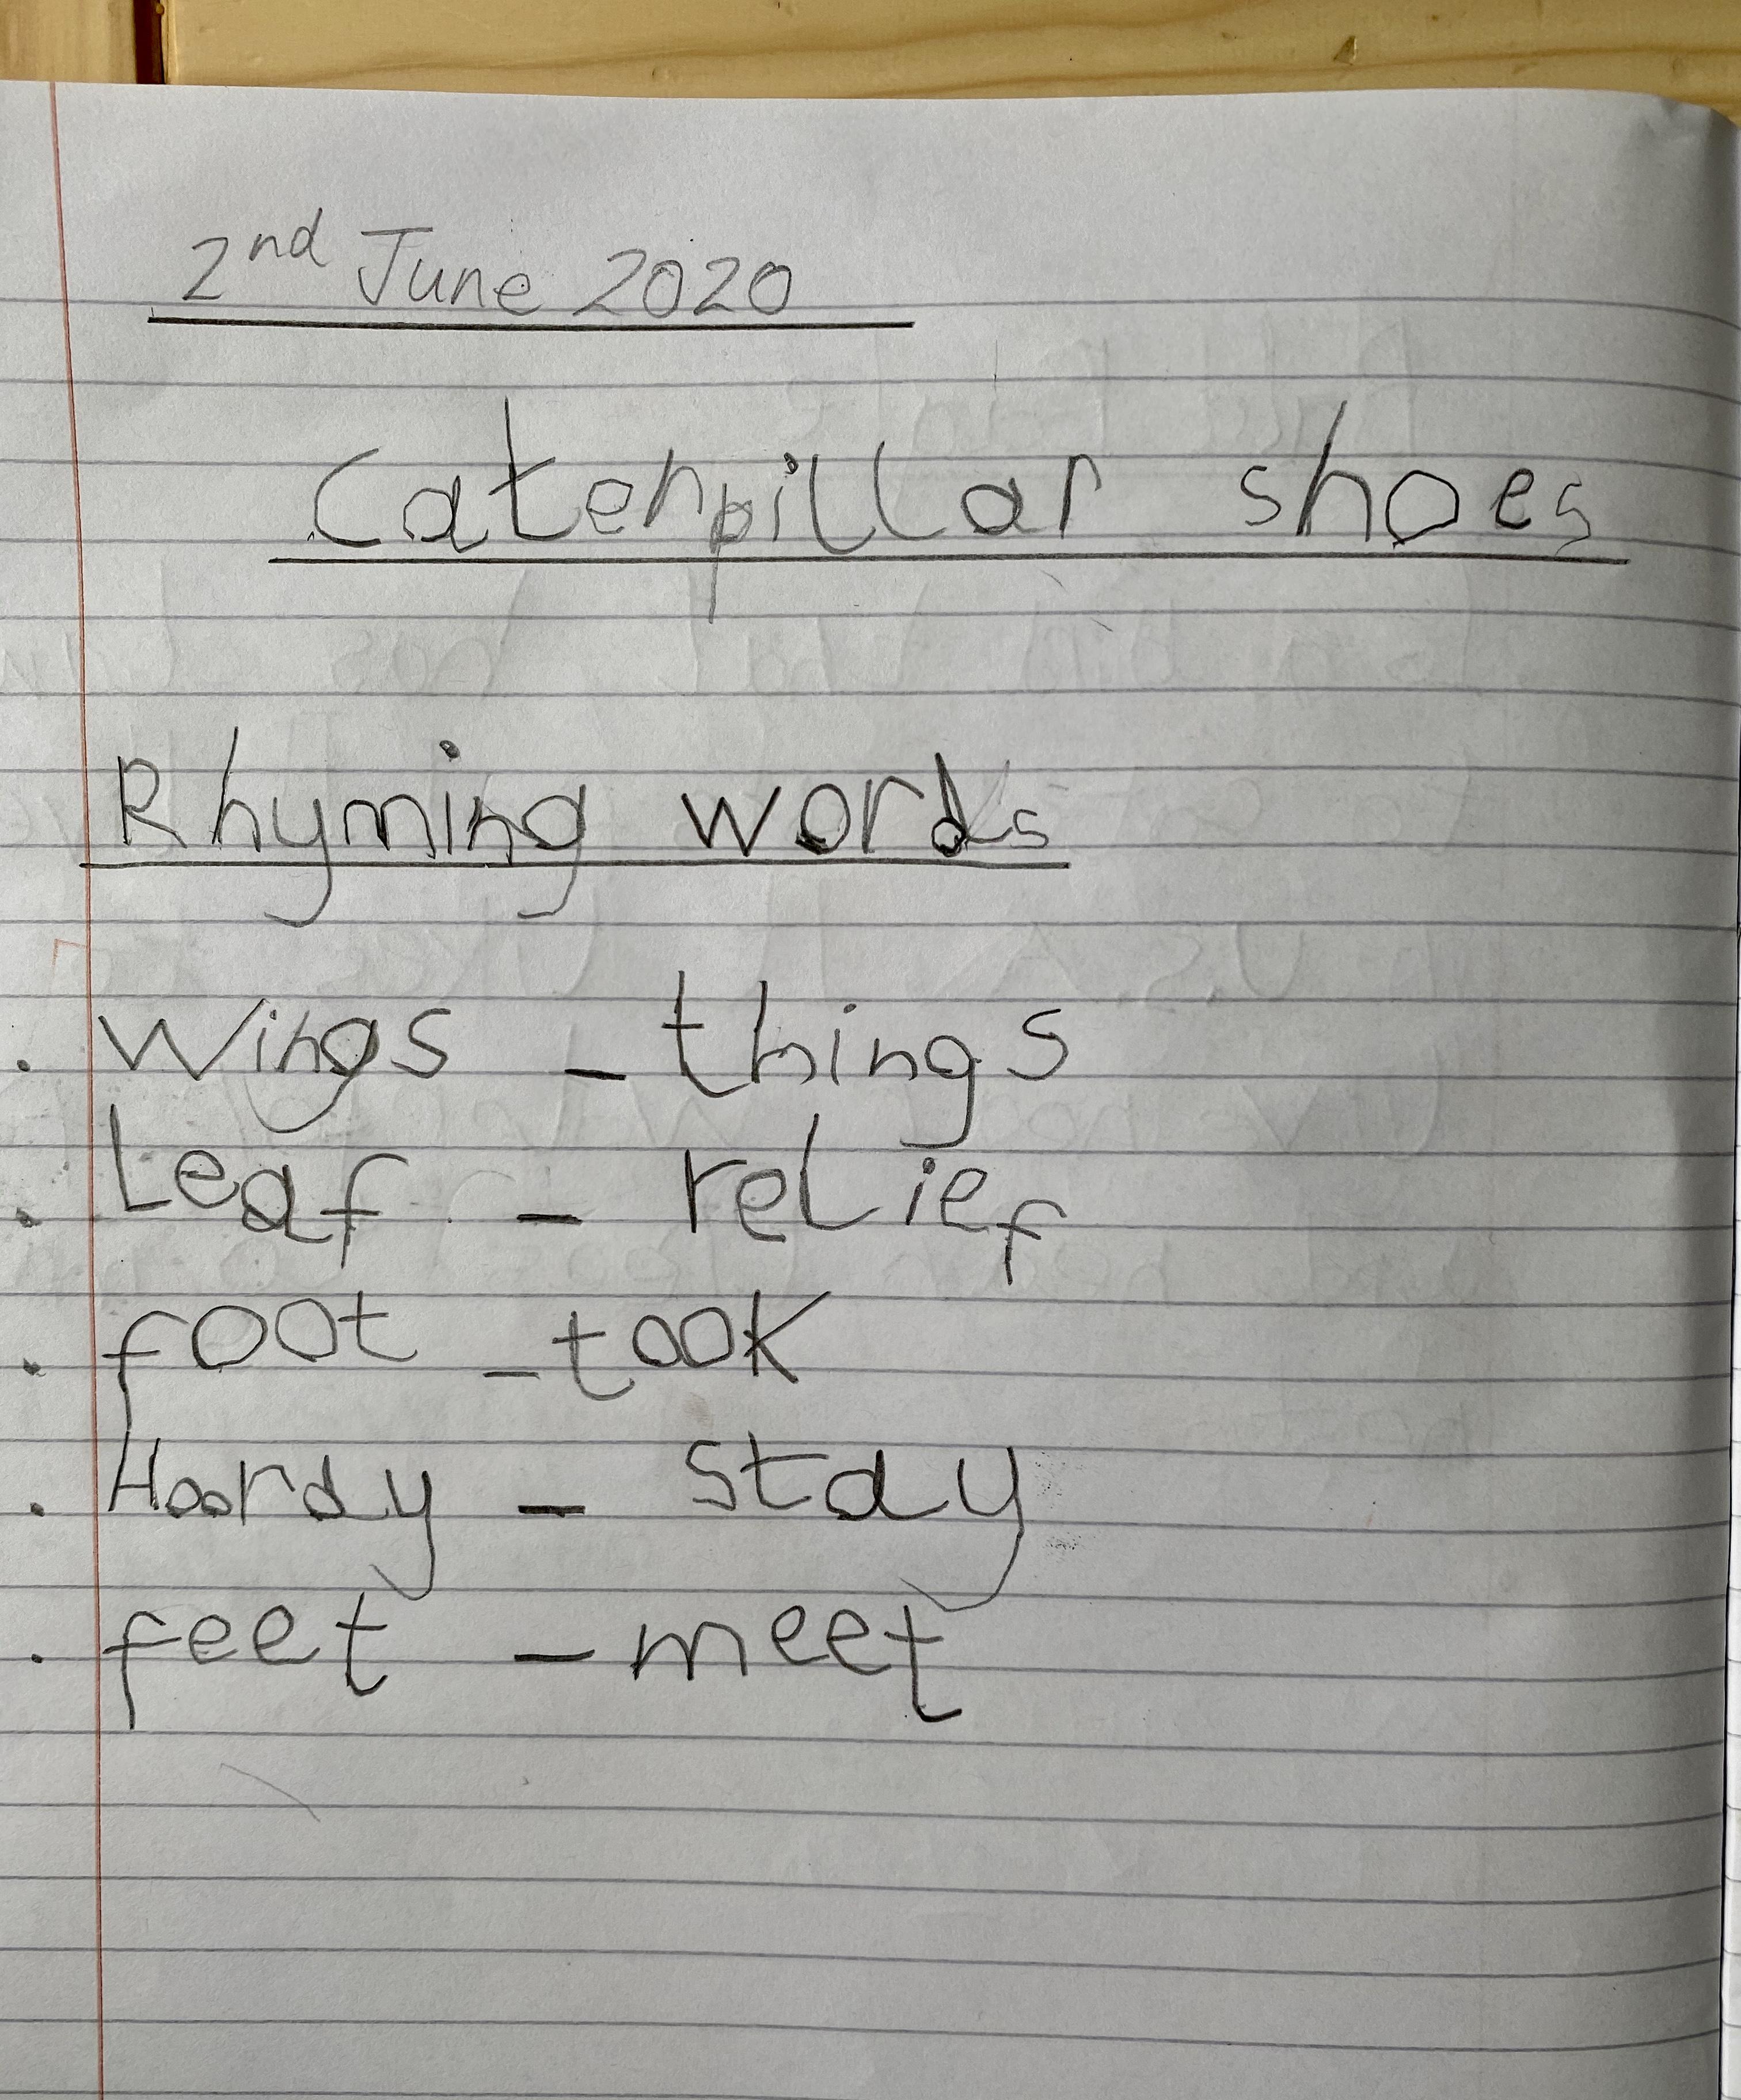 2nd June 2020
Caterpillar shoes
Rhyming words
. Wings - things
. Leaf - relief
. foot - took
. Hoordy - stay
. feet - meet